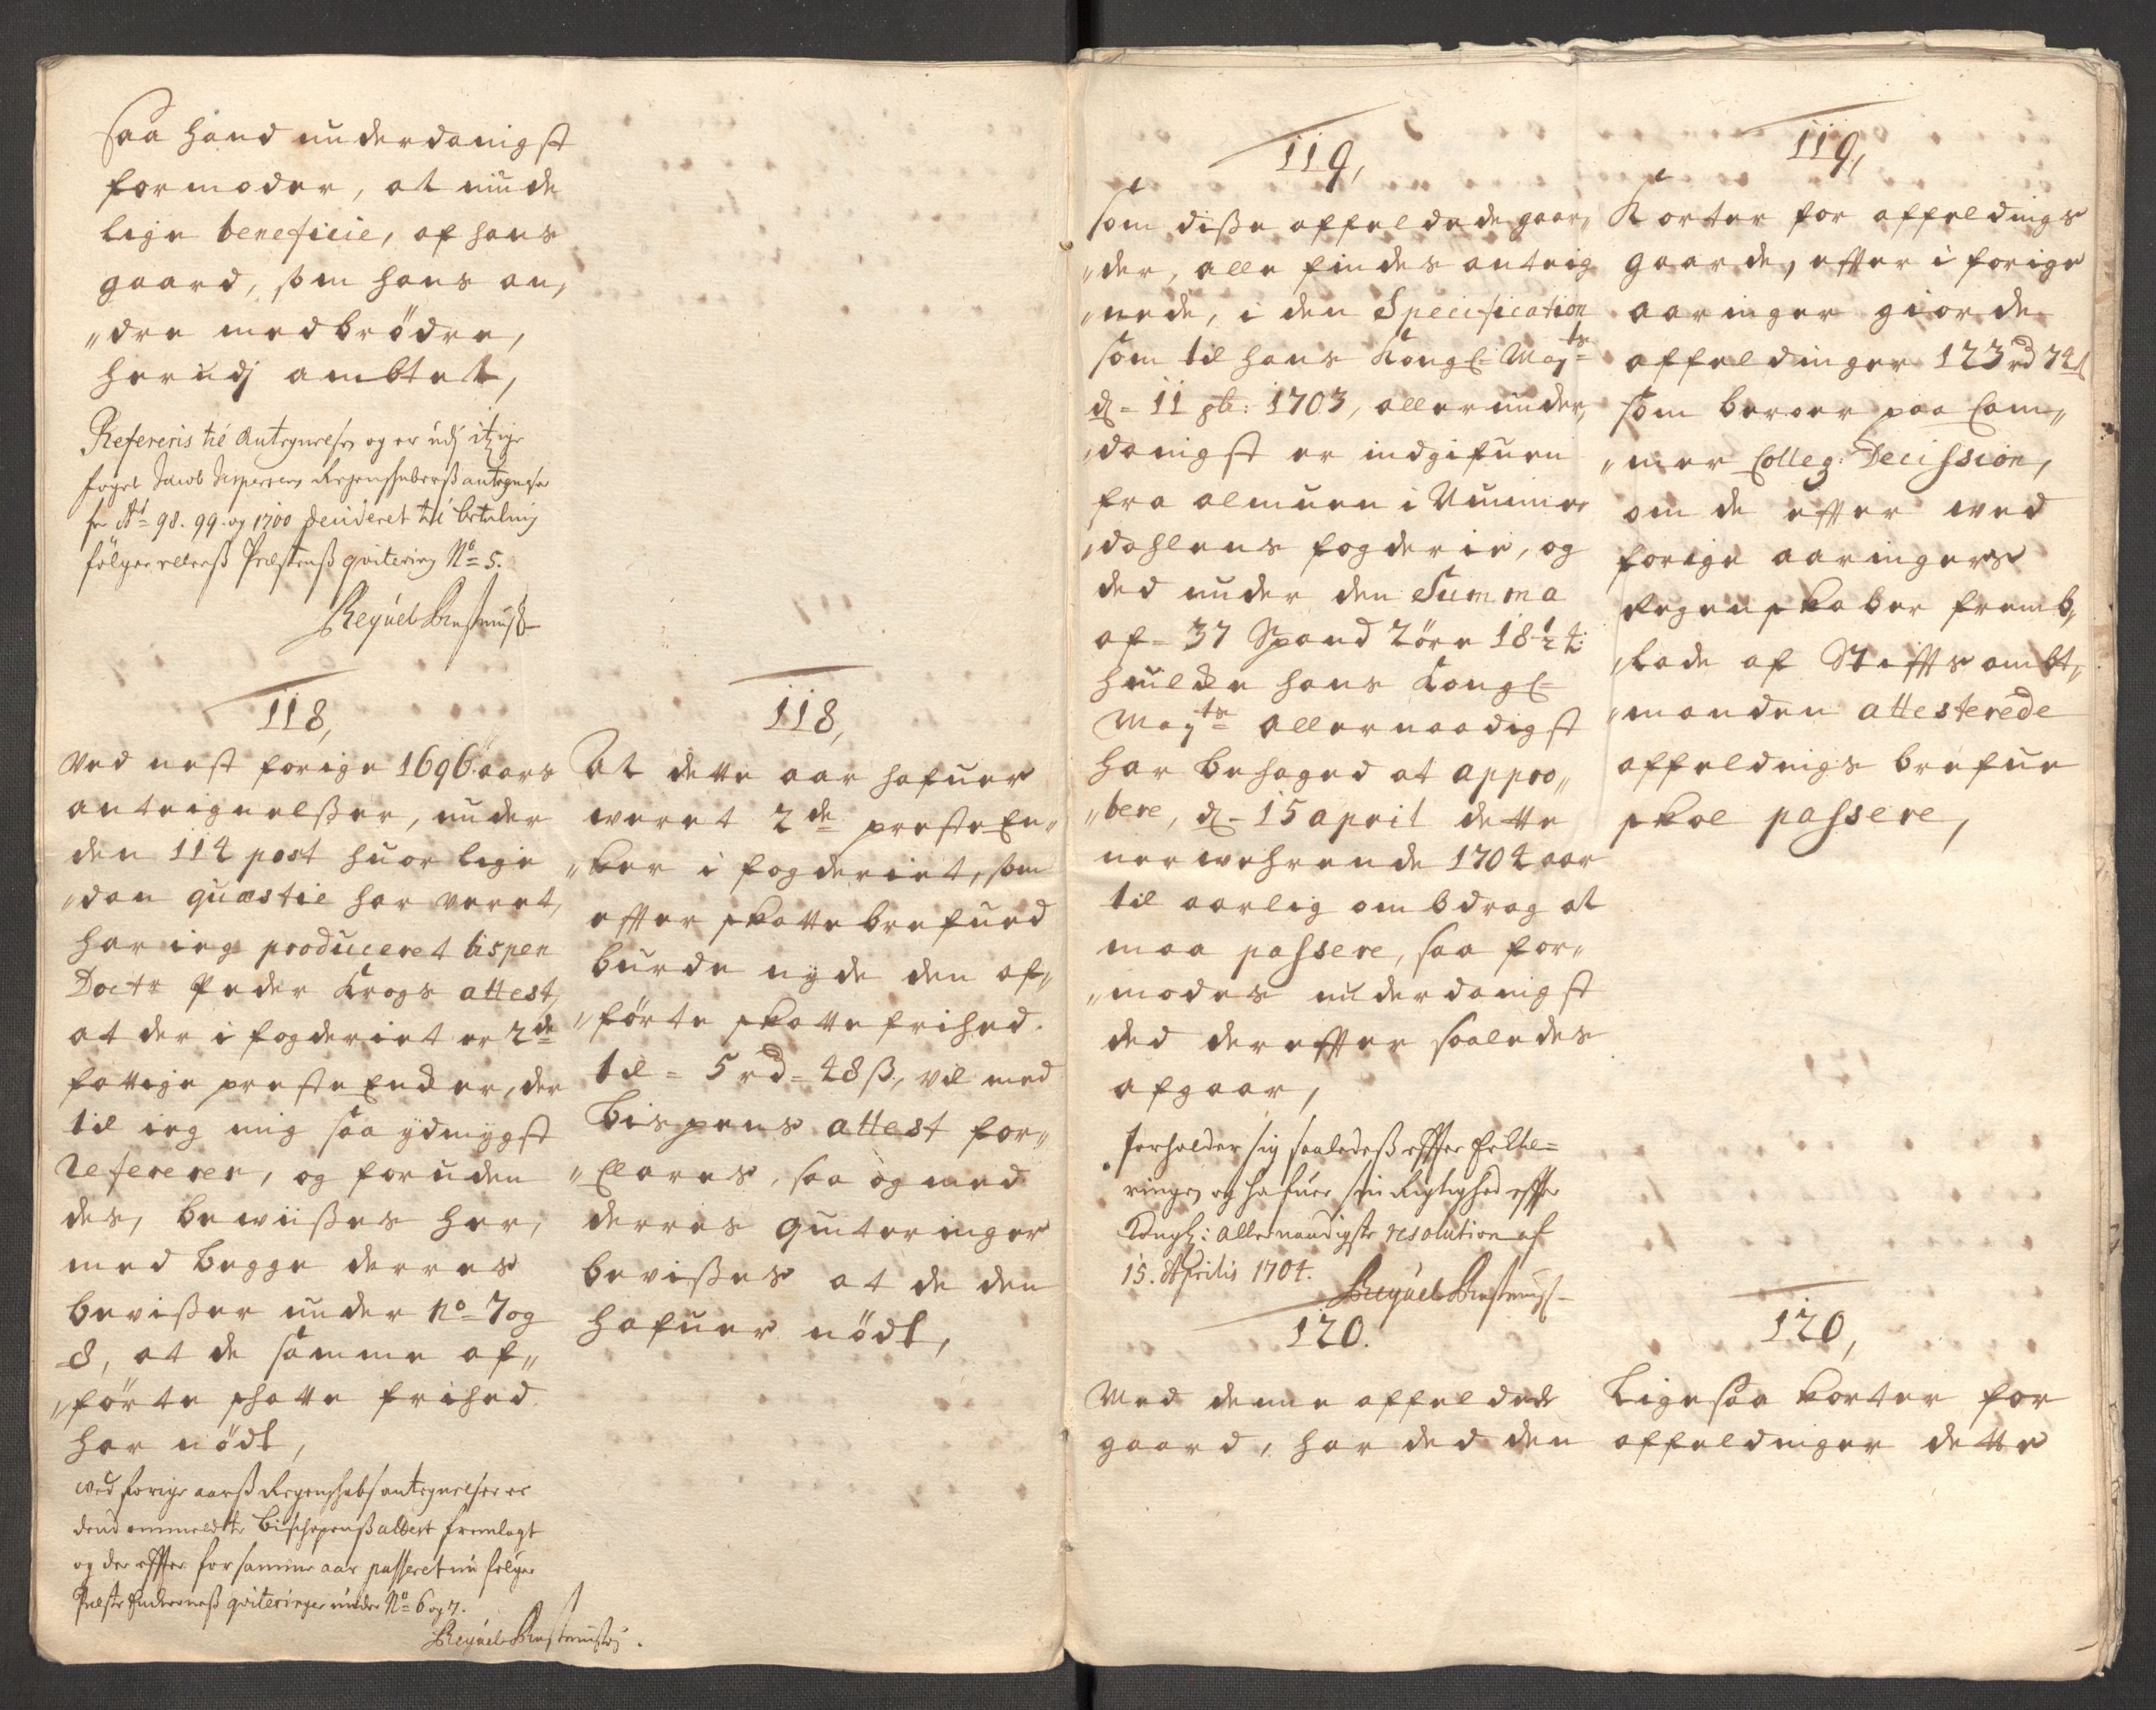 saa hand underdanigst
formoder, at nÿde
lige beneficie, af hans
gaard, som hans an„
„dre medbrödre,
herudj ambtet,
Refereris til Antegnelsen og er udj itzige
foget Jacob Jespersens Regenskabers antegnelse
for Ad 98. 99. og 1700 decideret til betaling
fölger ellers Præstens qvitering No= 5.
118,
Ved nest forige 1696 aars
anteignelßer, under
den 114 post huor lige
„dan quæstie har veret,
har ieg produceret bispen
Doctr Peder Krogs attest,
at der i fogderiet er 2de
fattige preste Encker, der
til ieg mig saa ydmygst
refererer, og foruden
des, bewiißes her,
med begge derres
bevißer under No= 7 og
8, at de samme af„
„förte skatte frihed
har nödt,
wed forige aars Regenskabs antegnelser er
dend ommeldte Bischopens attest fremlagt
og der effter for samme aar passeret nu fölger
Præste Enckernes qviteringer under No= 6 og 7.
118,
At dette aar hafuer
weret 2de preste En„
„ker i fogderiet, som
effter skattebrefued
burde nyde den af„
„förte skatte frihed
til = 5 rd = 48 ß, vil med
bispens attest for„
„Clares, saa og med
derres quiteringer
bevißes at de den
hafuer nödt,
119,
som diße affeldede gaar„
„der, alle findes anteig
„nede, i den Specification
som til hans Kongl= Mayts
d= 11 : 1703, allerunder„
„danigst er indgifuen
fra almuen i Numme
„dahlens fogderie, og
ded under den Summa
af= 37 Spand 2 öre 18½ :
huilde hans Kongl=
Mayts allernaadigst
har behaged at appro„
„bere, d= 15 april dette
nerwehrende 1704 aar
til aarlig ombdrag at
maa passere, saa for„
„modes underdanigst
ded dereffter saaledes
afgaar,
forholder sig saaledes effter
ringen og hafuer sin Rigtighed effter
Kongl: allernaadigste resolution af
15. Aprilis 1704.
120.
Med denne affeldede
gaard, har ded den
119,
Korter for affeldings
gaarde, effter i forige
aaringer giorde
affeldinger 123 rd 74 ß
som beroer paa Cam„
„mer Colleg: Decission,
om de effter wed
forige aaringers
Regenskaber fremb„
„lade af Stifftsambt„
„manden attesterede
affeldnigs brefue
skal passere,
120,
Ligesaa korter for
affeldinger dette